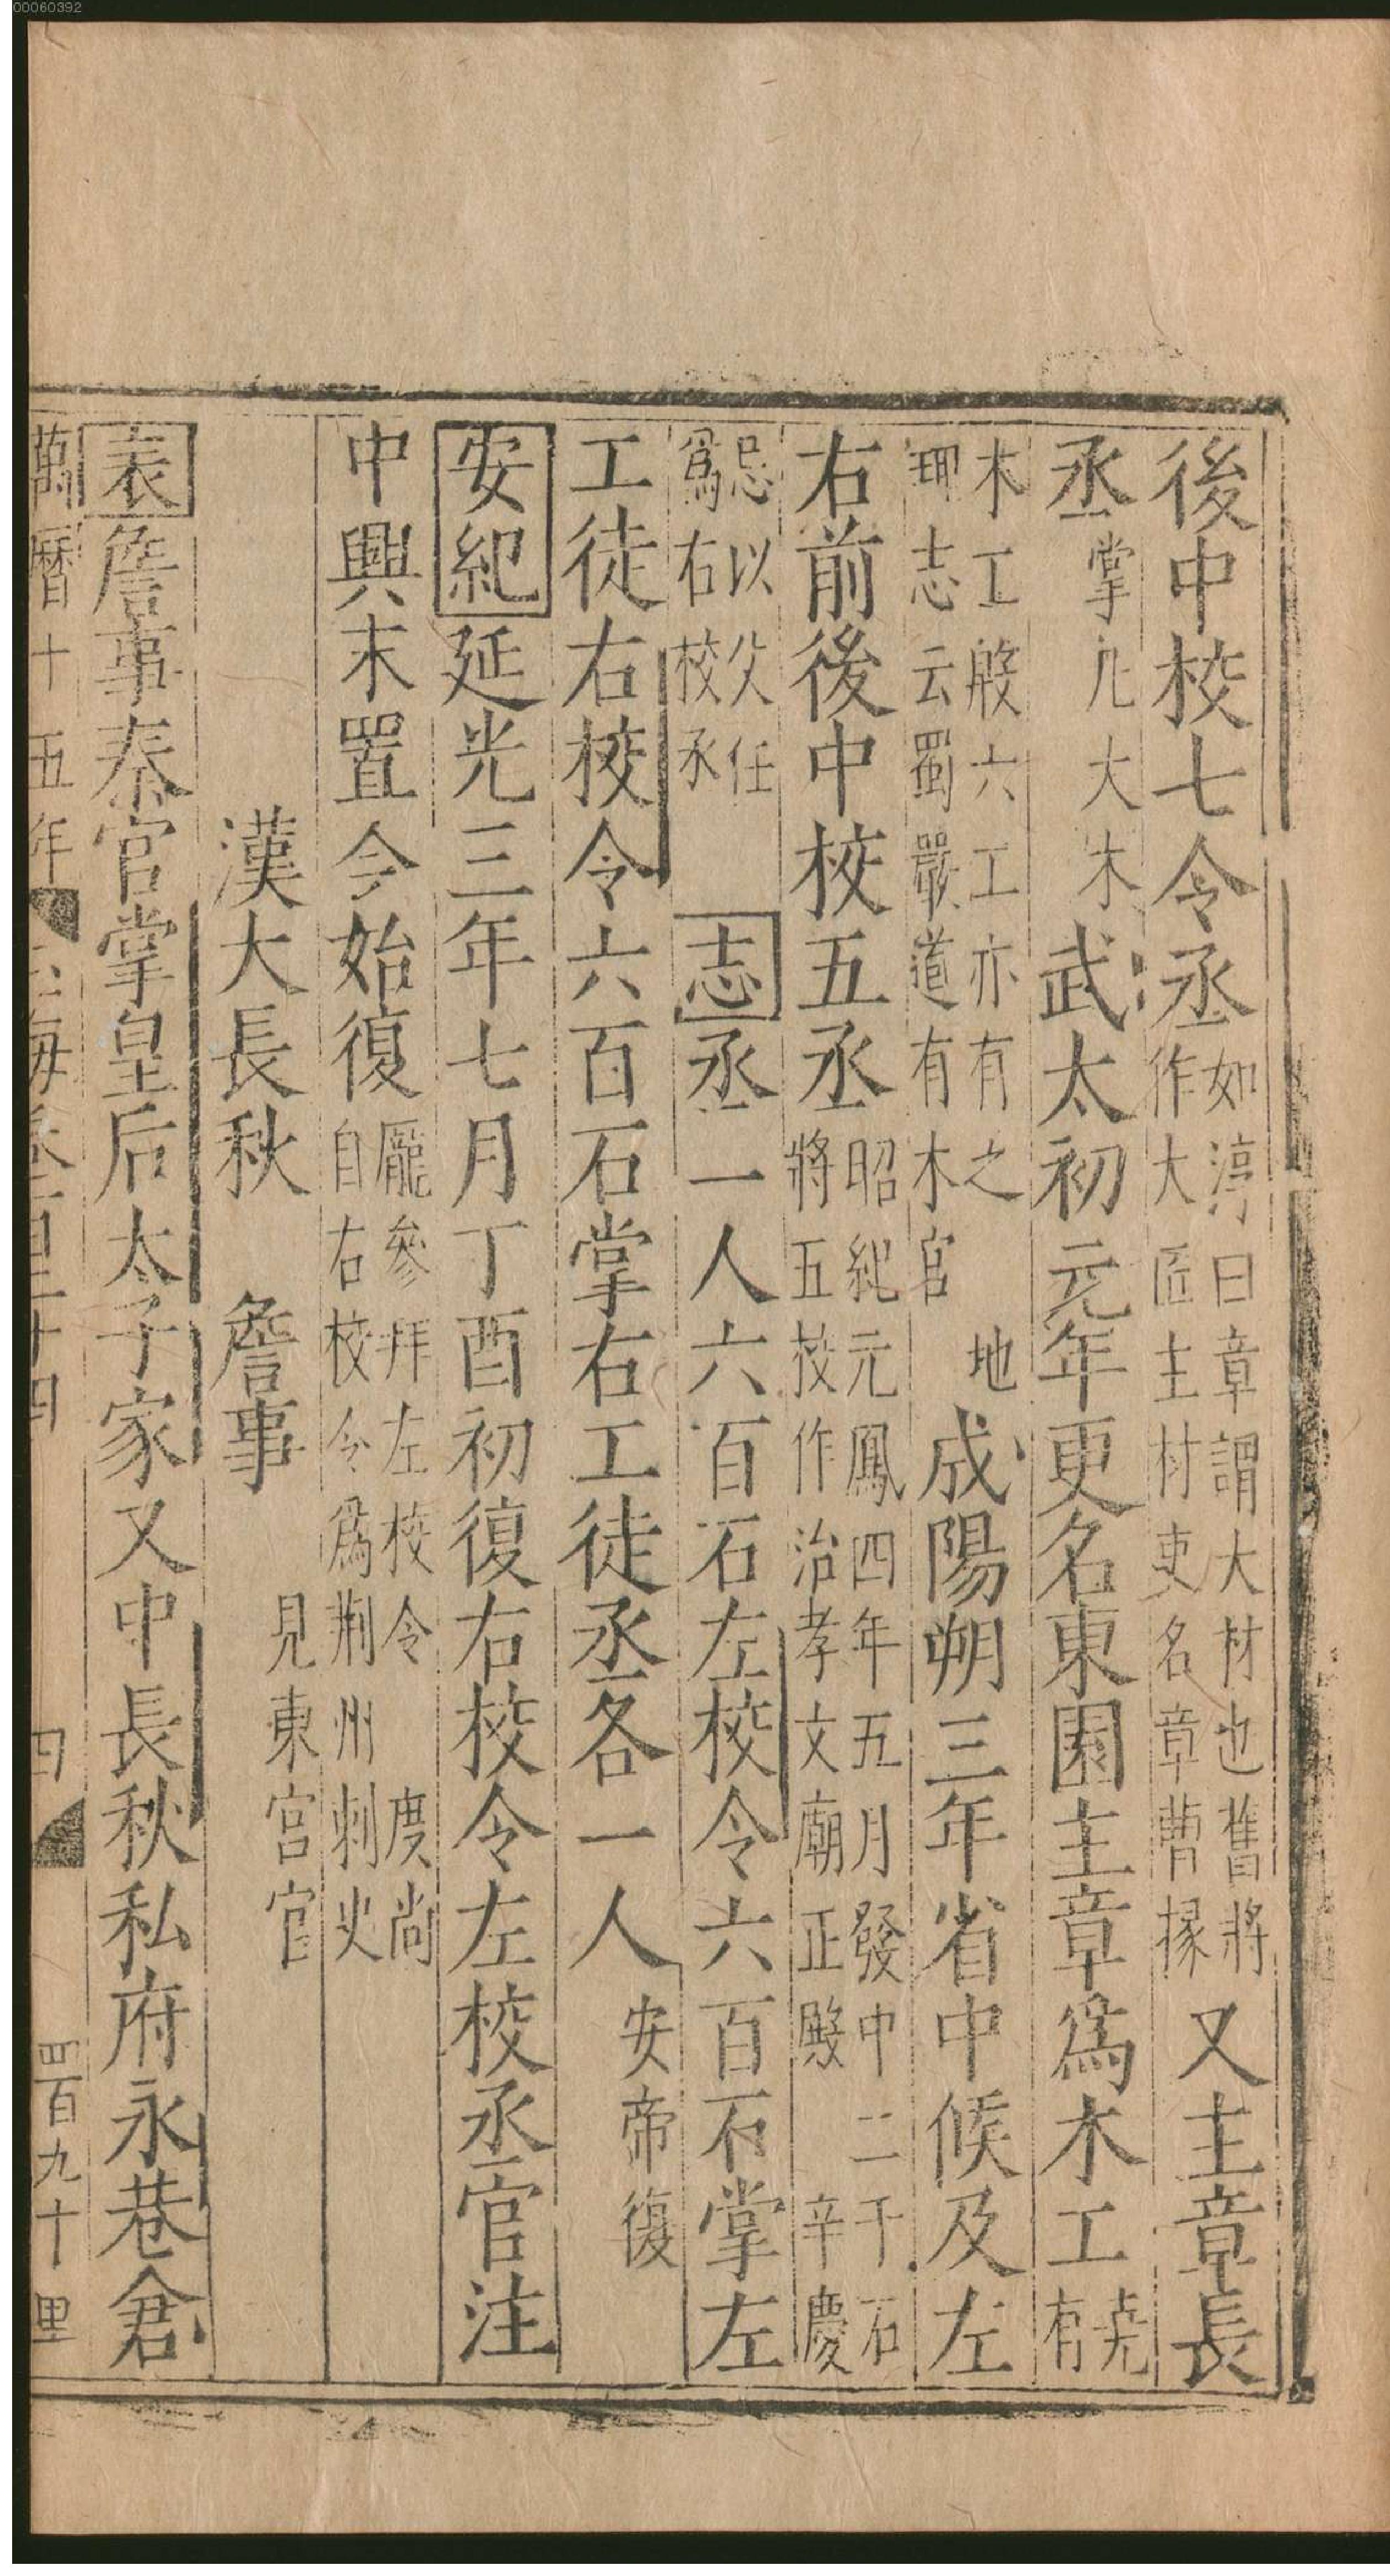 後中校七令丞如淳曰章謂大材也舊將
作大匠主材吏名章曹掾又主章長
丞掌凢大木武太初元年更名東園主章爲木工尭
有
木工般六工亦有之地
理志云蜀嚴道有木官成陽朔三年省中候及左
右前後中校五丞昭紀元鳳四年五月發中二千石
將五校作治孝文廟正殿辛慶
忌以父任
爲右校丞志丞一人六百石左校令六百石掌左
工徒右校令六百石掌右工徒丞各一人安帝復
安紀延光三年七月丁酉初復右校令左校丞官注
中興末置今始復龐參拜左校令度尚
自右校令爲荆州刺史
漢大長秋詹事見東宫官
表詹事秦官掌皇后太子家又中長秋私府永巷倉
萬曆十五年
四百九十里
00060392